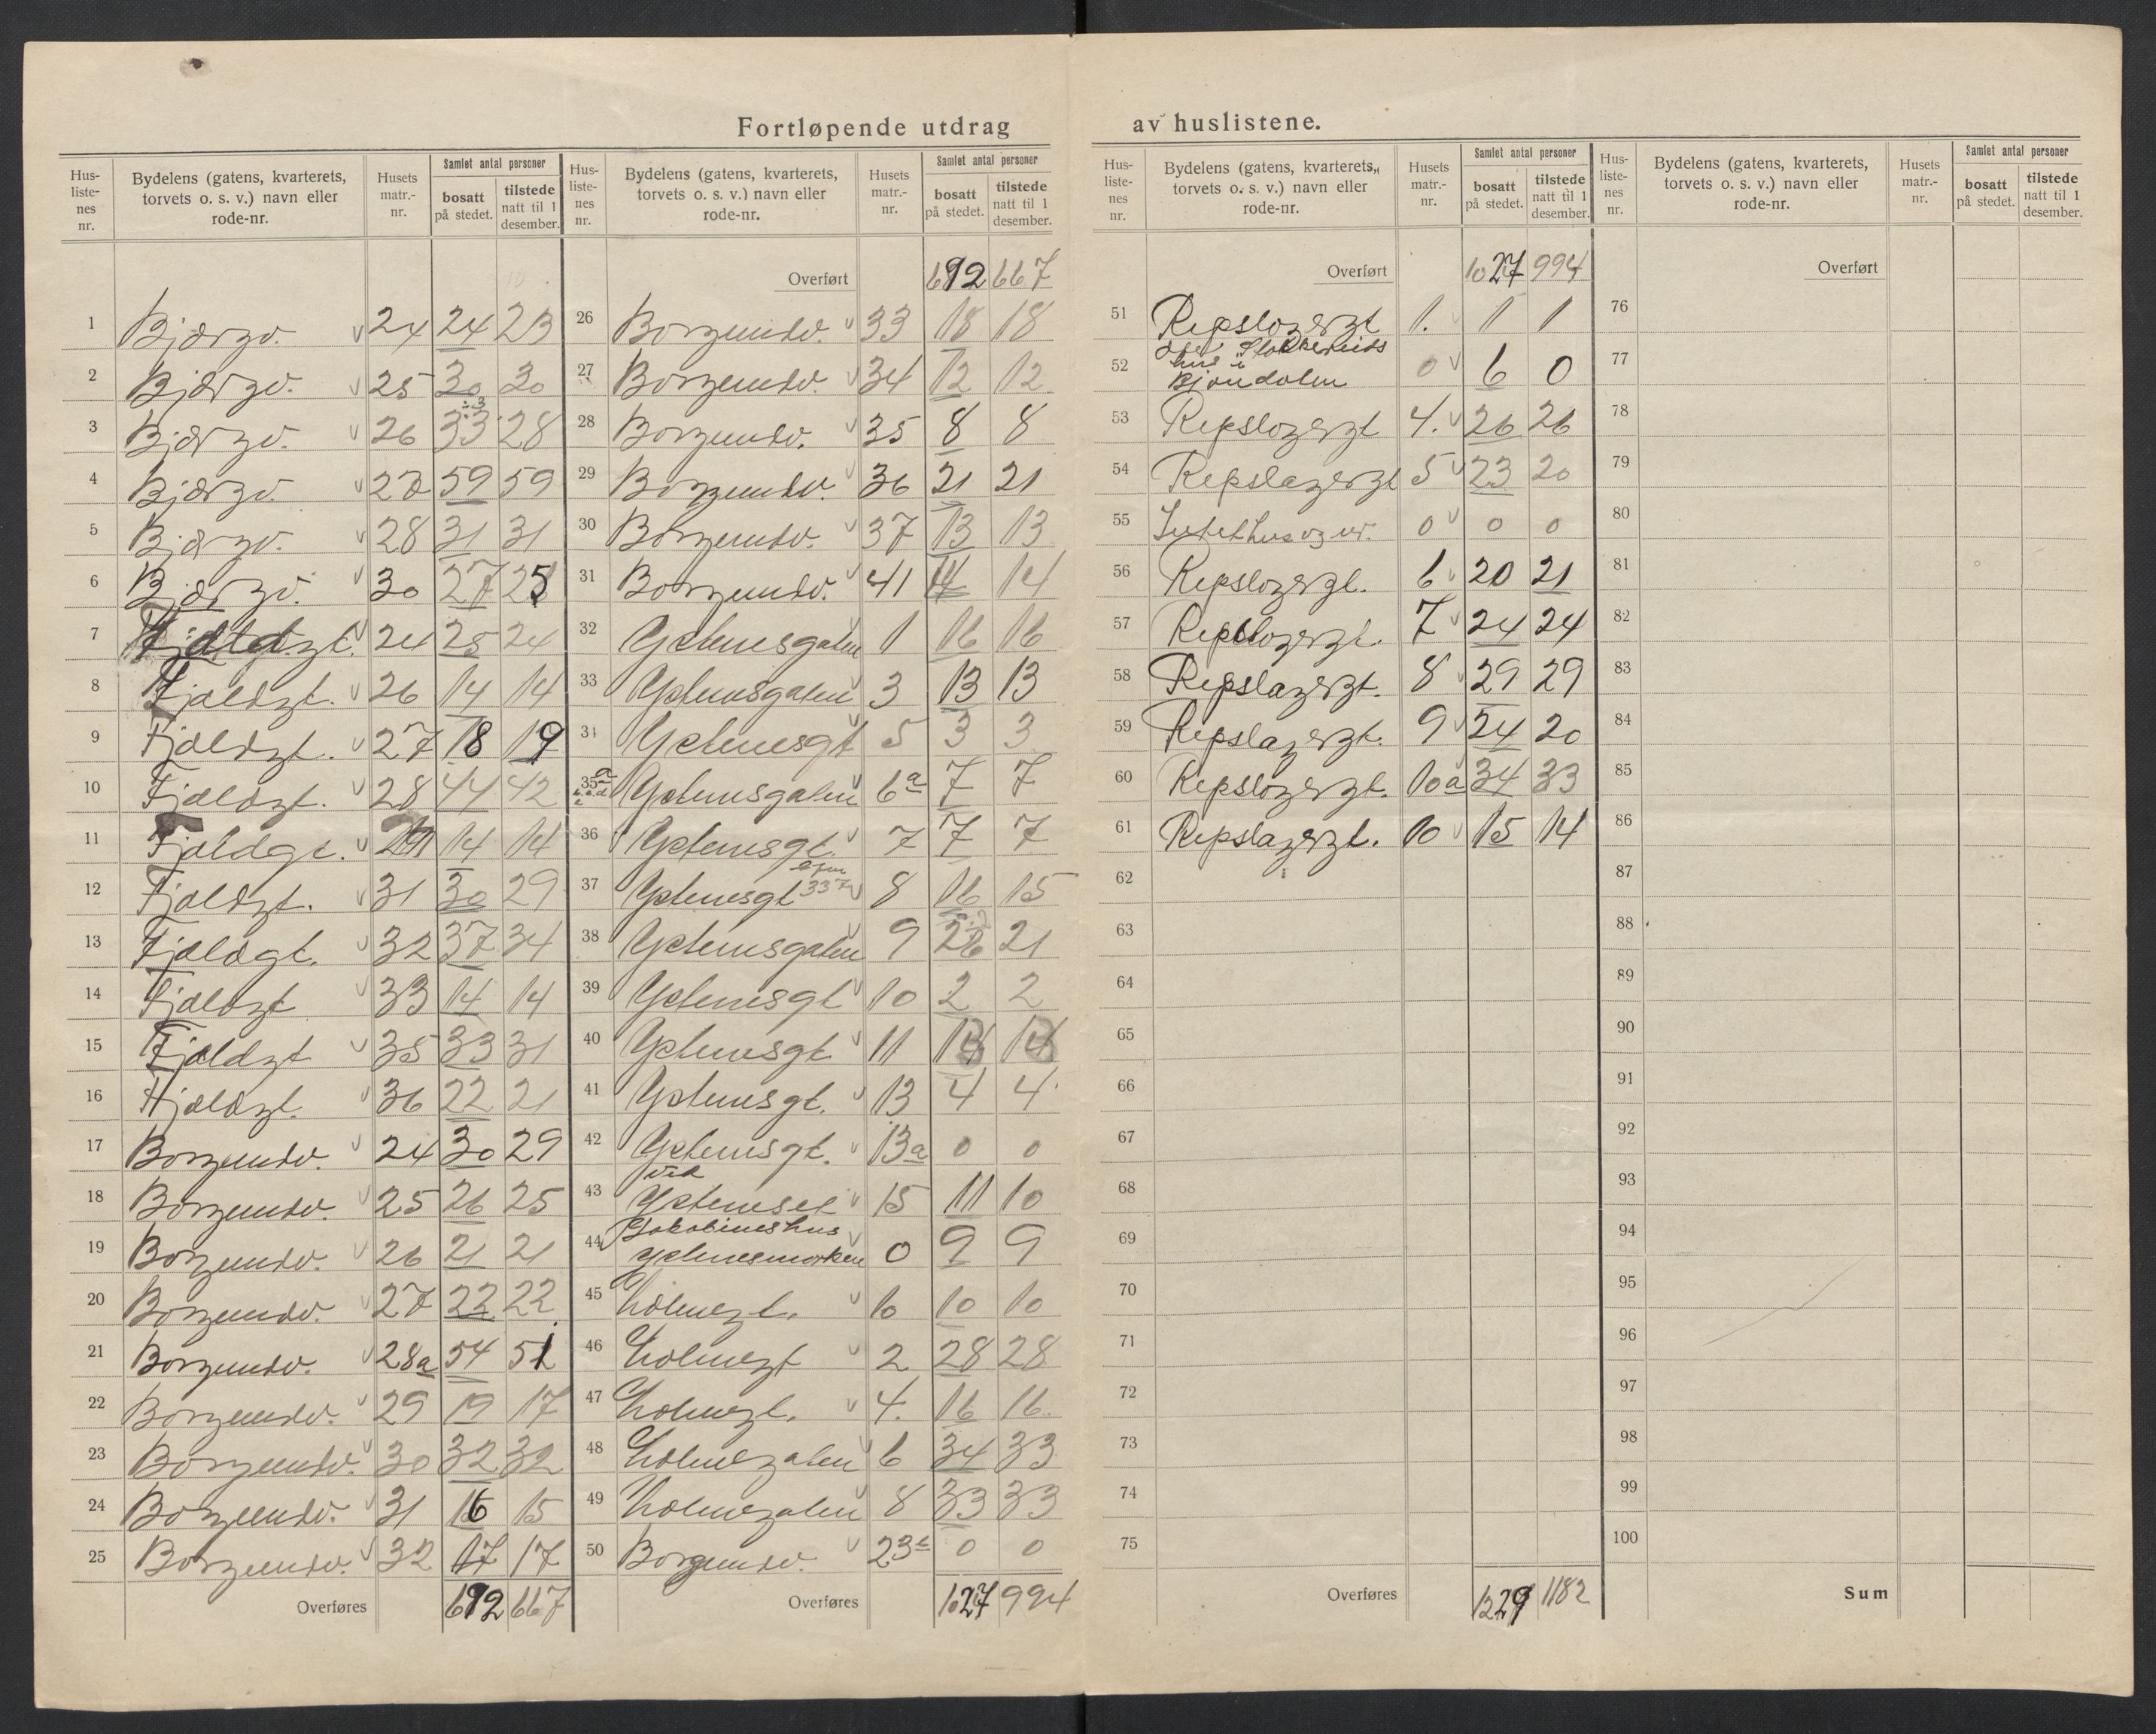 Fortløpende utdrag av huslistene.
Hus-liste-nes nr. Bydelens (gatens, kvarterets, torvets o. s. v.) navn eller rode-nr. Husets matr.-nr. Samlet antal personer bosatt på stedet. tilstede natt til 1 desember.
1 Bjærgv. 24 24 23
2 Bjærgv. 25 30 30
3 Bjærgv. 26 33 ÷3 28
4 Bjærgv. 27 59 59
5 Bjærgv. 28 31 31
6 Bjærgv. 30 27 25
7 Fjeldgt. 24 25 24
8 Fjældgt. 26 14 14
9 Fjældgt. 27 18 19
10 Fjældgt. 28 44 42
11 Fjældgt. 29 14 14
12 Fjældgt. 31 30 29
13 Fjældgt. 32 37 34
14 Fjældgt 33 14 14
15 Fjældgt 35 33 31
16 Fjældgt. 36 22 21
17 Borgundv. 24 30 29
18 Borgundv. 25 26 25
19 Borgundv. 26 21 21
20 Borgundv. 27 22 22
21 Borgundv. 28a 54 51
22 Borgundv. 29 19 17
23 Borgundv. 30 32 32
24 Borgundv. 31 16 15
25 Borgundv. 32 17 17
Overføres 692 667
Hus-liste-nes nr. Bydelens (gatens, kvarterets, torvets o. s. v.) navn eller rode-nr. Husets matr.-nr. Samlet antal personer bosatt på stedet. tilstede natt til 1 desember.
Overført 692 667
26 Borgundv. 33 18 18
27 Borgundv. 34 12 12
28 Borgundv. 35 8 8
29 Borgundv. 36 21 21
30 Borgundv. 37 13 13
31 Borgundv. 41 14 14
32 Ystenesgaten 1 16 16
33 Ystenesgaten 3 13 13
34 Ystenesgt 5 3 3
35a Ystenesgaten 6a 7 7
36 Ystenesgt. 7 7 7
37 Ystenesgt 8 16 15
38 Ystenesgaten 9 21
39 Ystenesgt 10 2 2
40 Ystenesgt 11
41 Ystenesgt. 13 4 4
42 Ystenesgt. 13a 0 0
43 ved Ysteneset 15 11 10
44 Jakobineshus Ystenesmarken 0 9 9
45 Holmegt. 10 10 10
46 Holmegt 2 28 28
47 Holmegt. 4. 16 16
48 Holmegaten 6 34 33
49 Holmegaten 8 33 33
50 Borgundv. 23c 0 0
Overføres 1027 994
Hus-liste-nes nr. Bydelens (gatens, kvarterets, torvets o. s. v.) navn eller rode-nr. Husets matr.-nr. Samlet antal personer bosatt på stedet. tilstede natt til 1 desember.
Overført 1027 994
51 Repslagergt 1. 1 1
52 hus i Bjøndalen 0 6 0
53 Repslagergt 4. 26 26
54 Repslagergt 5 23 20
55 Intet hus og nr. 0 0 0
56 Repslagergt. 6 20 21
57 Repslagergt. 7 24 24
58 Repslagergt. 8 29 29
59 Repslagergt. 9 24 20
60 Repslagergt. 10a 34 33
61 Repslagergt. 10 15 14
62
63
64
65
66
67
68
69
70
71
72
73
74
75
Overføres 1229 1182
Hus-liste-nes nr. Bydelens (gatens, kvarterets, torvets o. s. v.) navn eller rode-nr. Husets matr.-nr. Samlet antal personer bosatt på stedet. tilstede natt til 1 desember.
Overført
76
77
78
79
80
81
82
83
84
85
86
87
88
89
90
91
92
93
94
95
96
97
98
99
100
Sum